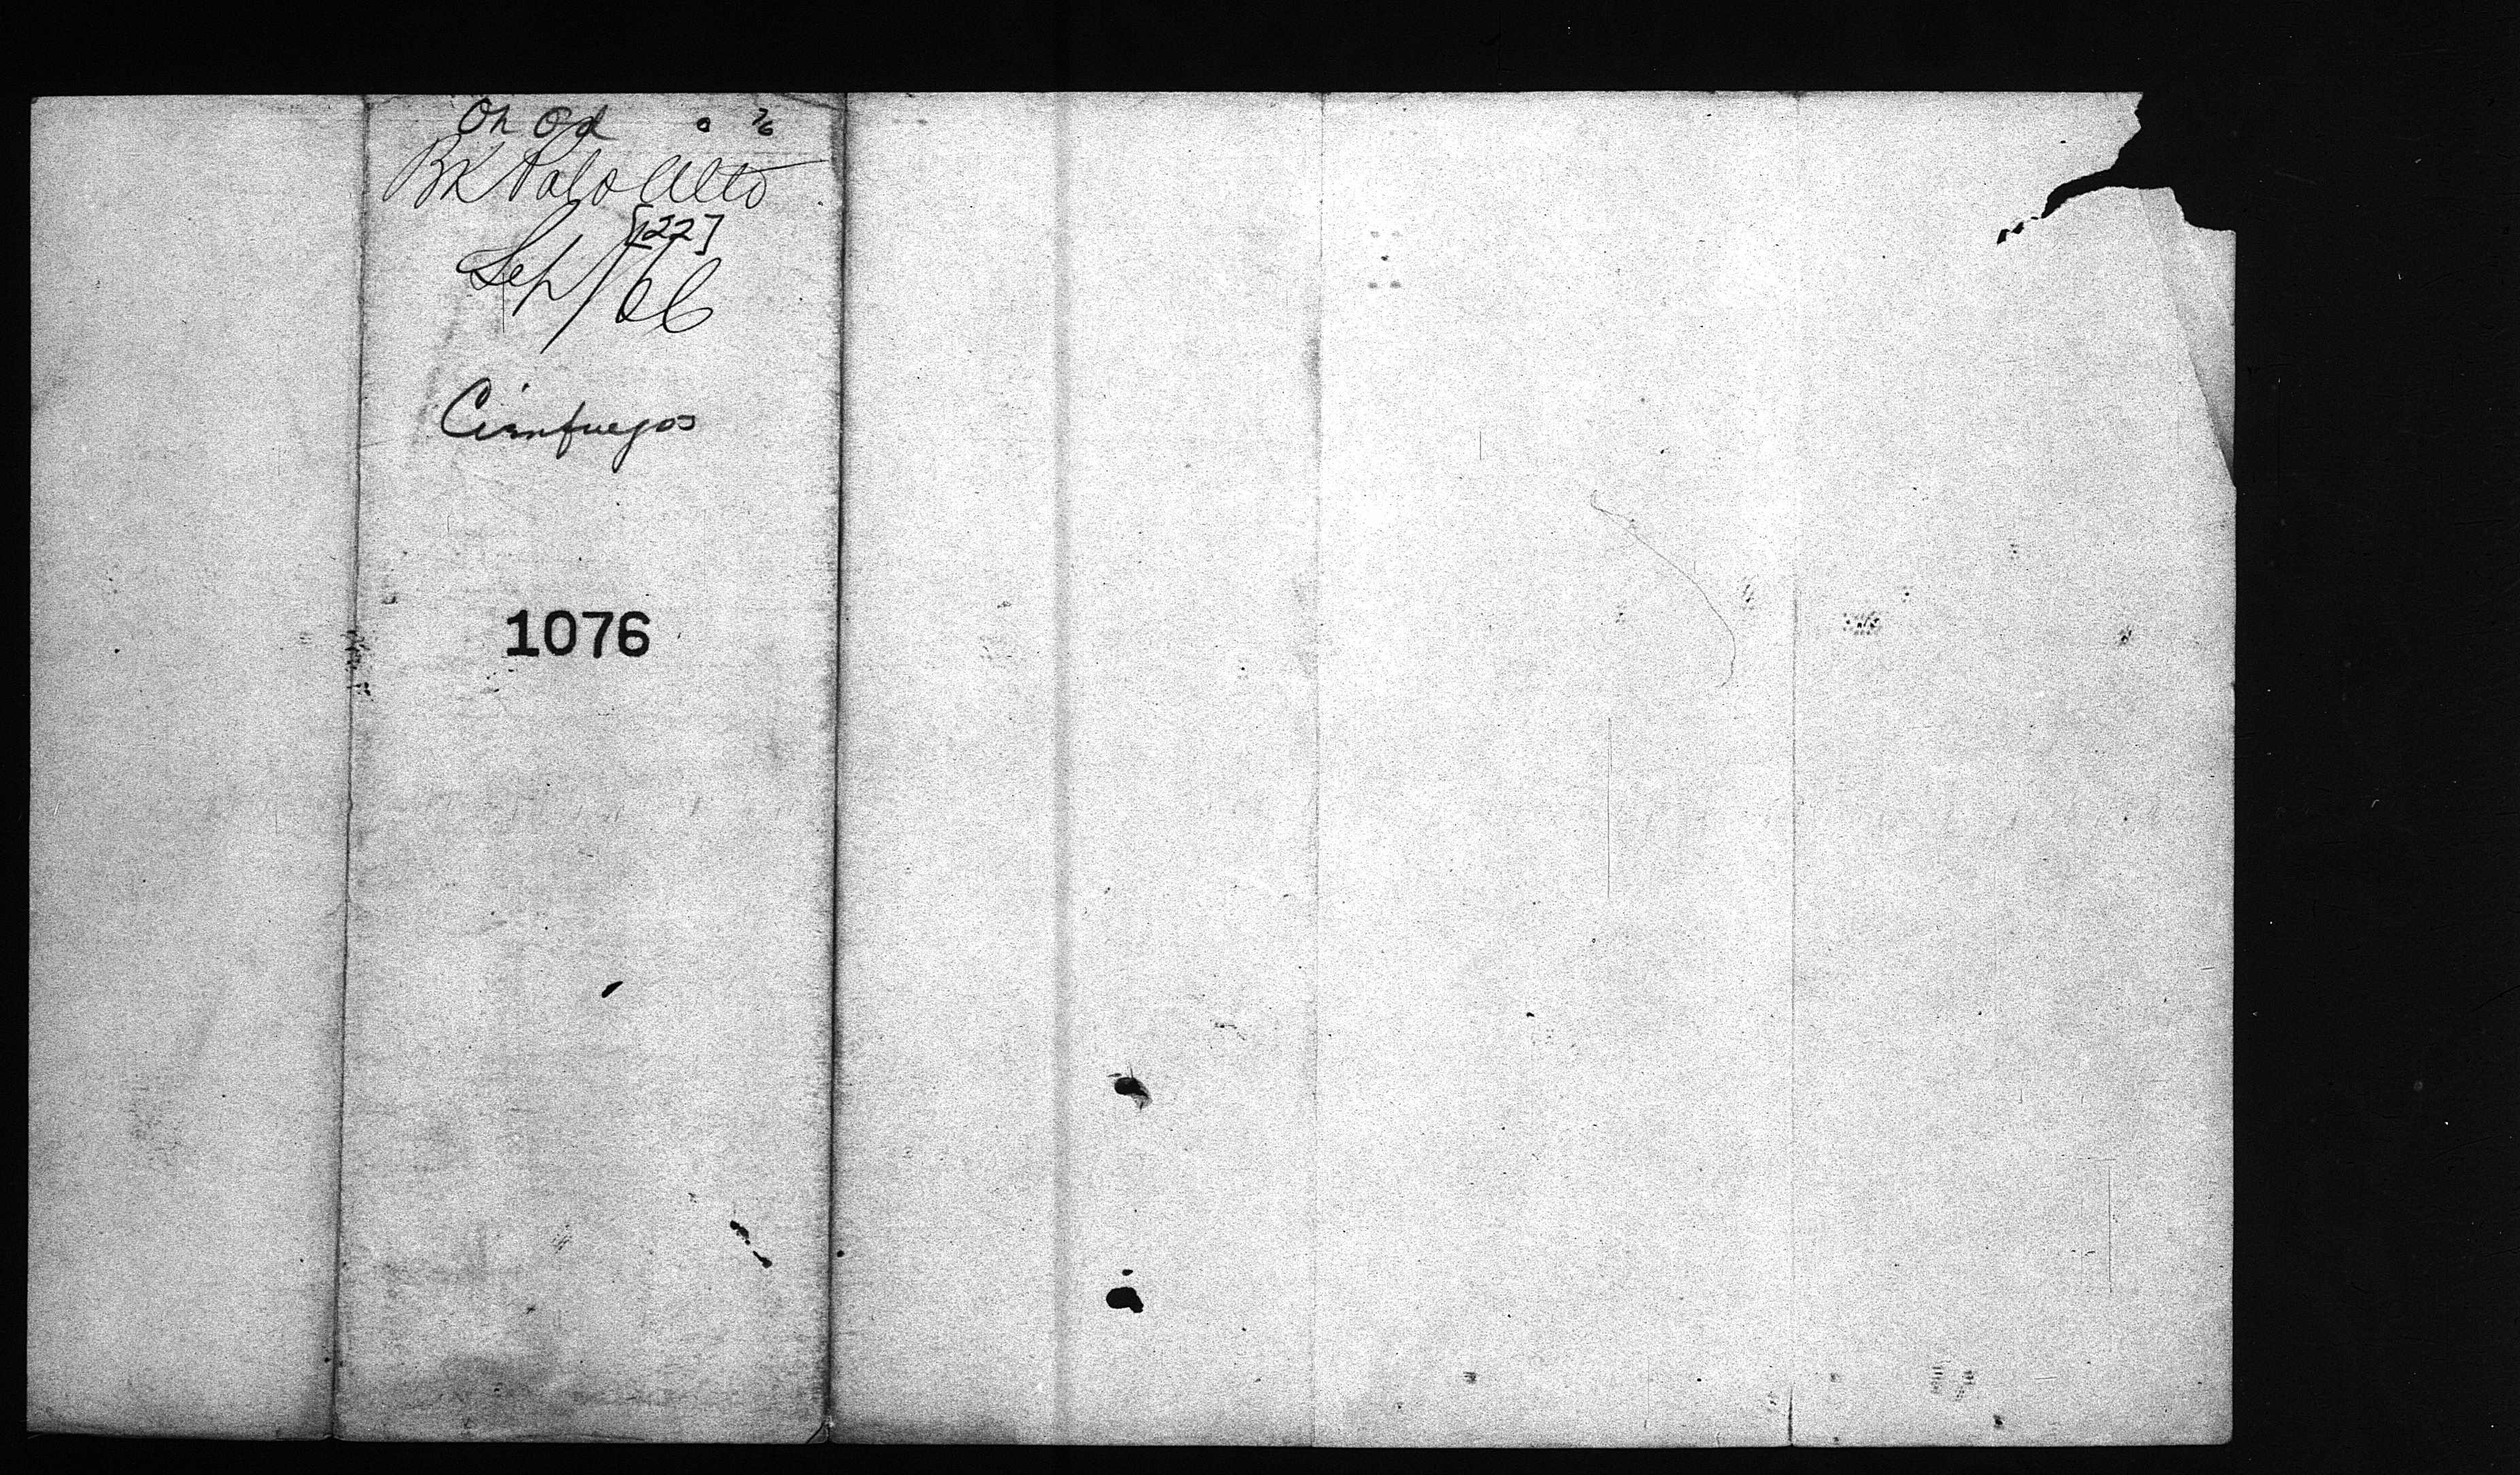 Oh Od
Bk Palo Alto
[22]
Sep/66
Cienfuegos
1076